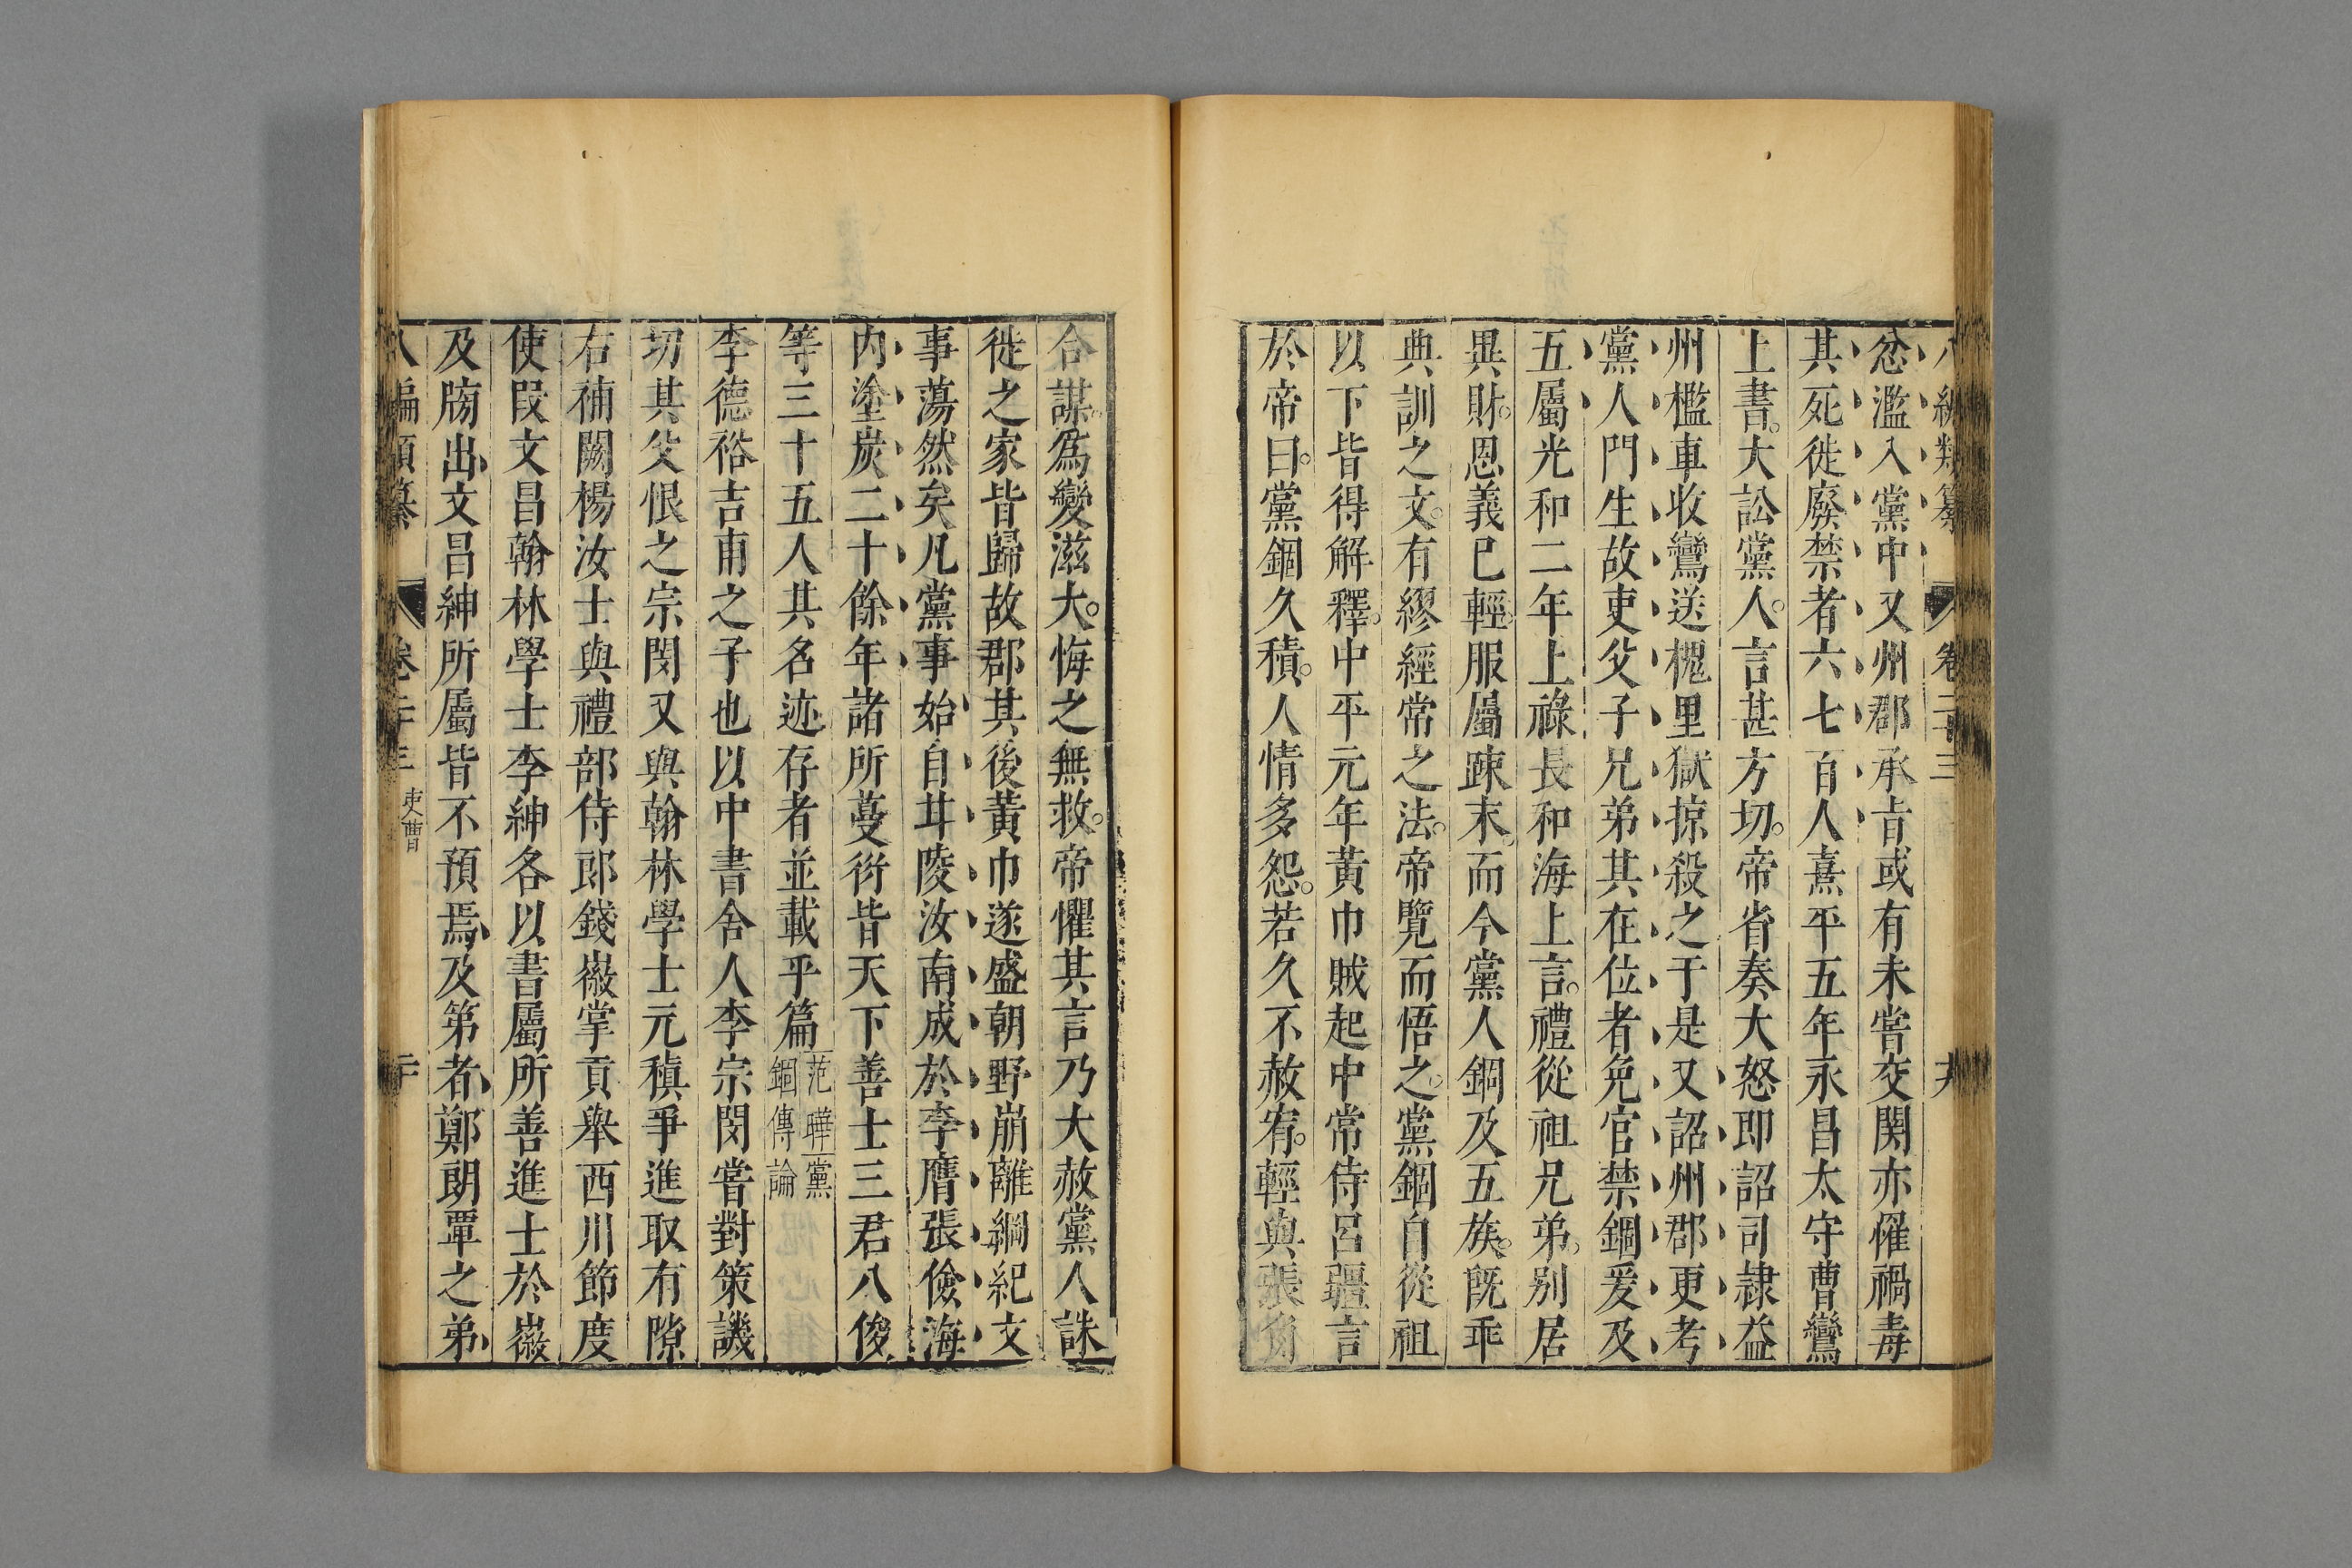 八編類纂 卷二十三 十九
忿濫入黨中又州郡承旨或有未嘗交関亦罹禍毒
其死徙廢禁者六七百人熹平五年永昌太守曹鸞
上書。大訟黨人。言甚方切。帝省奏大怒即詔司隷益
州檻車收鸞送槐里獄掠殺之于是又詔州郡更考
黨人門生故吏父子兄弟其在位者免官禁錮爰及
五屬光和二年上祿長和海上言。禮從祖兄弟。别居
異財。恩義已輕。服屬踈末。而今黨人錮及五族。旣乖
典訓之文。有繆經常之法。帝覽而悟之。黨錮自從祖
以下皆得解釋。中平元年黃巾賊起中常侍呂彊言
於帝曰。黨錮久積。人情多怨。若久不赦宥。輕與張角
合謀。為變滋大。悔之無救。帝懼其言乃大赦黨人誅
徙之家皆歸故郡其後黃巾遂盛朝野崩離綱紀文
事蕩然矣凡黨事始自甘陵汝南成於李膺張儉海
內塗炭二十餘年諸所蔓衍皆天下善士三君八俊
等三十五人其名迹存者並載乎篇 范曄黨錮傳論
李德裕吉甫之子也以中書舍人李宗閔嘗對策譏
切其父恨之宗閔又與翰林學士元稹爭進取有隙
右補闕楊汝士與禮部侍郎錢徽掌貢舉西川節度
使段文昌翰林學士李紳各以書屬所善進士於徽
及牓出文昌紳所屬皆不預焉及第者鄭朗覃之弟
八編類纂 卷二十三 吏曹 二十